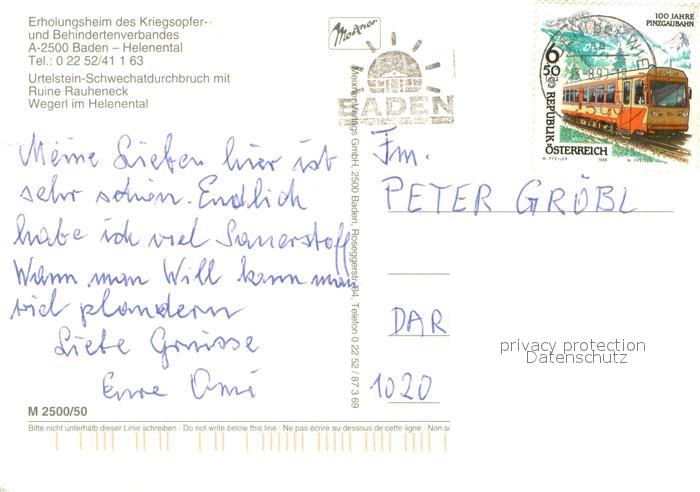 Erholungsheim des Kriegsopfer-
und Behindertenverbandes
A-2500 Baden – Helenental
Tel.: 0 22 52/41 1 63
Urtelstein-Schwechatdurchbruch mit
Ruine Rauheneck
Wegerl im Helenental
Meixner
BADEN
100 JAHRE
PINZGAUBAHN
6
50
REPUBLIK
ÖSTERREICH
W. PFEILER 1998 W. PFEILER
Meine Lieben hier ist
sehr schön. Endlich
habe ich viel Sauerstoff
Wann man Will kann man
viel plaudern
Liebe Grüsse
Eure Omi
Fm.
PETER GRÖBL
DAR
1020
privacy protection
Datenschutz
Meixner Verlags GmbH, 2500 Baden, Roseggerstr. 84, Telefon 0 22 52 / 87 3 69
M 2500/50
Bitte nicht unterhalb dieser Linie schreiben · Do not write below this line · Ne pas écrire au dessous de cette ligne · Non s